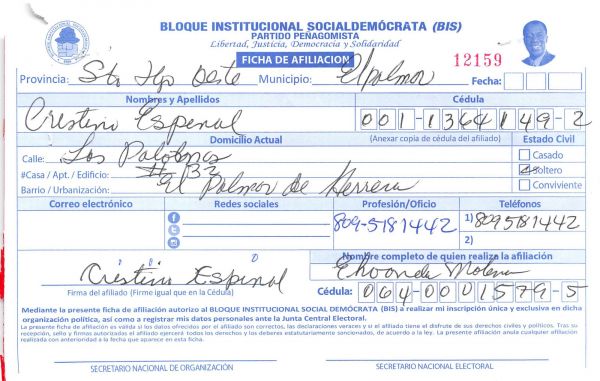 BLOQUE INSTITUCIONAL SOCIALDEMÓCRATA (BIS)
PARTIDO PEÑAGOMISTA
Libertad, Justicia, Democracia y Solidaridad
FICHA DE AFILIACION
12159
Provincia: Sto Dgo Oeste Municipio: El palmar Fecha:
Nombres y Apellidos Cédula
Crestino Espinal 001-1364149-2
Domicilio Actual (Anexar copia de cédula del afiliado) Estado Civil
Calle: Los Palomas Casado
#Casa / Apt. / Edificio: # 32 Soltero
Barrio / Urbanización: El Palmar de Herrera Conviviente
Correo electrónico Redes sociales Profesión/Oficio Teléfonos
809-5181442 1) 8095181442
2)
Nombre completo de quien realiza la afiliación
Crestino Espinal Molina
Firma del afiliado (Firme igual que en la Cédula) Cédula: 064-0001579-5
Mediante la presente ficha de afiliación autorizo al BLOQUE INSTITUCIONAL SOCIAL DEMÓCRATA (BIS) a realizar mi inscripción única y exclusiva en dicha
organización política, así como a registrar mis datos personales ante la Junta Central Electoral.
La presente ficha de afiliación es válida si los datos ofrecidos por el afiliado son correctos, las declaraciones veraces y si el afiliado tiene el disfrute de sus derechos civiles y políticos. Tras su
recepción, sello y firmas autorizadas el afiliado ejercerá todos los derechos y los deberes estatutariamente sancionados, de acuerdo a la ley. La presente afiliación anula cualquier afiliación
realizada con anterioridad a la fecha que aparece en esta ficha.
SECRETARIO NACIONAL DE ORGANIZACIÓN SECRETARIO NACIONAL ELECTORAL